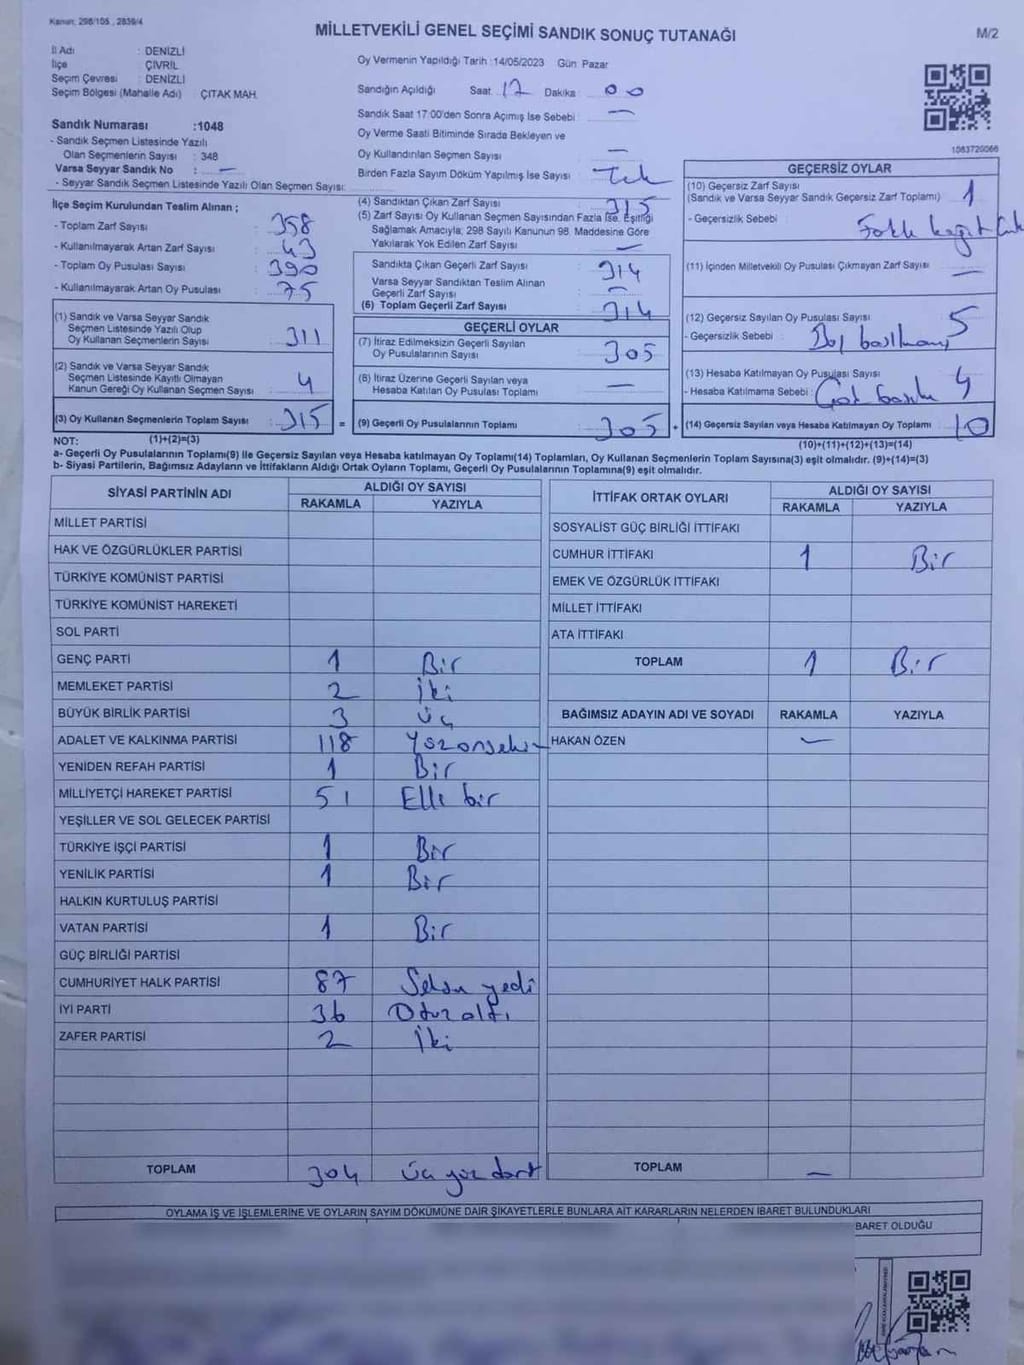 Kanun: 298/105 , 2839/4
MİLLETVEKİLİ GENEL SEÇİMİ SANDIK SONUÇ TUTANAĞI
M/2
İl Adı : DENİZLİ
İlçe : ÇİVRİL
Seçim Çevresi : DENİZLİ
Seçim Bölgesi (Mahalle Adı) ÇITAK MAH.
Sandık Numarası :1048
- Sandık Seçmen Listesinde Yazılı
Olan Seçmenlerin Sayısı : 348
Varsa Seyyar Sandık No : —
- Seyyar Sandık Seçmen Listesinde Yazılı Olan Seçmen Sayısı:
Oy Vermenin Yapıldığı Tarih :14/05/2023 Gün Pazar
Sandığın Açıldığı Saat 17 Dakika : 00
Sandık Saat 17:00'den Sonra Açımış İse Sebebi : —
Oy Verme Saati Bitiminde Sırada Bekleyen ve
Oy Kullandırılan Seçmen Sayısı : —
Birden Fazla Sayım Döküm Yapılmış İse Sayısı : Tek
1083720066
İlçe Seçim Kurulundan Teslim Alınan ;
- Toplam Zarf Sayısı : 358
- Kullanılmayarak Artan Zarf Sayısı : 43
- Toplam Oy Pusulası Sayısı : 390
- Kullanılmayarak Artan Oy Pusulası : 75
(1) Sandık ve Varsa Seyyar Sandık
Seçmen Listesinde Yazılı Olup
Oy Kullanan Seçmenlerin Sayısı : 311
(2) Sandık ve Varsa Seyyar Sandık
Seçmen Listesinde Kayıtlı Olmayan
Kanun Gereği Oy Kullanan Seçmen Sayısı : 4
(3) Oy Kullanan Seçmenlerin Toplam Sayısı : 315 =
(4) Sandıktan Çıkan Zarf Sayısı : 315
(5) Zarf Sayısı Oy Kullanan Seçmen Sayısından Fazla İse. Eşitliği
Sağlamak Amacıyla; 298 Sayılı Kanunun 98. Maddesine Göre
Yakılarak Yok Edilen Zarf Sayısı : —
Sandıkta Çıkan Geçerli Zarf Sayısı : 314
Varsa Seyyar Sandıktan Teslim Alınan
Geçerli Zarf Sayısı : —
(6) Toplam Geçerli Zarf Sayısı : 314
GEÇERLİ OYLAR
(7) İtiraz Edilmeksizin Geçerli Sayılan
Oy Pusulalarının Sayısı : 305
(8) İtiraz Üzerine Geçerli Sayılan veya
Hesaba Katılan Oy Pusulası Toplamı : —
(9) Geçerli Oy Pusulalarının Toplamı : 305 +
GEÇERSİZ OYLAR
(10) Geçersiz Zarf Sayısı : 1
(Sandık ve Varsa Seyyar Sandık Geçersiz Zarf Toplamı)
- Geçersizlik Sebebi :
(11) İçinden Milletvekili Oy Pusulası Çıkmayan Zarf Sayısı : —
(12) Geçersiz Sayılan Oy Pusulası Sayısı : 5
- Geçersizlik Sebebi :
(13) Hesaba Katılmayan Oy Pusulası Sayısı : 4
- Hesaba Katılmama Sebebi :
(14) Geçersiz Sayılan veya Hesaba Katılmayan Oy Toplamı : 10
NOT: (1)+(2)=(3)
(10)+(11)+(12)+(13)=(14)
a- Geçerli Oy Pusulalarının Toplamı(9) ile Geçersiz Sayılan veya Hesaba katılmayan Oy Toplamı(14) Toplamları, Oy Kullanan Seçmenlerin Toplam Sayısına(3) eşit olmalıdır. (9)+(14)=(3)
b- Siyasi Partilerin, Bağımsız Adayların ve İttifakların Aldığı Ortak Oyların Toplamı, Geçerli Oy Pusulalarının Toplamına(9) eşit olmalıdır.
SİYASİ PARTİNİN ADI
ALDIĞI OY SAYISI
RAKAMLA YAZIYLA
MİLLET PARTİSİ
HAK VE ÖZGÜRLÜKLER PARTİSİ
TÜRKİYE KOMÜNİST PARTİSİ
TÜRKİYE KOMÜNİST HAREKETİ
SOL PARTİ
GENÇ PARTİ 1 Bir
MEMLEKET PARTİSİ 2 İki
BÜYÜK BİRLİK PARTİSİ 3 Üç
ADALET VE KALKINMA PARTİSİ 118 Yüzonsekiz
YENİDEN REFAH PARTİSİ 1 Bir
MİLLİYETÇİ HAREKET PARTİSİ 51 Elli bir
YEŞİLLER VE SOL GELECEK PARTİSİ
TÜRKİYE İŞÇİ PARTİSİ 1 Bir
YENİLİK PARTİSİ 1 Bir
HALKIN KURTULUŞ PARTİSİ
VATAN PARTİSİ 1 Bir
GÜÇ BİRLİĞİ PARTİSİ
CUMHURİYET HALK PARTİSİ 87 Seksen yedi
İYİ PARTİ 36 Otuz altı
ZAFER PARTİSİ 2 İki
TOPLAM 304 Üç yüz dört
İTTİFAK ORTAK OYLARI
ALDIĞI OY SAYISI
RAKAMLA YAZIYLA
SOSYALİST GÜÇ BİRLİĞİ İTTİFAKI
CUMHUR İTTİFAKI 1 Bir
EMEK VE ÖZGÜRLÜK İTTİFAKI
MİLLET İTTİFAKI
ATA İTTİFAKI
TOPLAM 1 Bir
BAĞIMSIZ ADAYIN ADI VE SOYADI RAKAMLA YAZIYLA
HAKAN ÖZEN —
TOPLAM —
OYLAMA İŞ VE İŞLEMLERİNE VE OYLARIN SAYIM DÖKÜMÜNE DAİR ŞİKAYETLERLE BUNLARA AİT KARARLARIN NELERDEN İBARET BULUNDUKLARI
BARET OLDUĞU